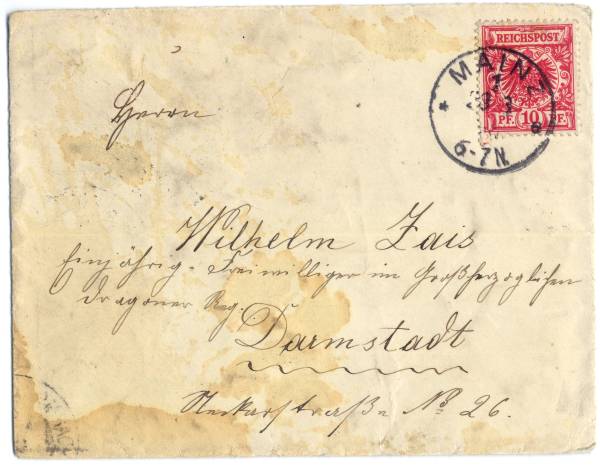 REICHSPOST
PF. 10 PF.
MAINZ
6-7N.
Herrn
Wilhelm Zais
Einjährig-Freiwilliger im Großherzoglichen
Dragoner Reg.
Darmstadt
Neckarstraße No 26.